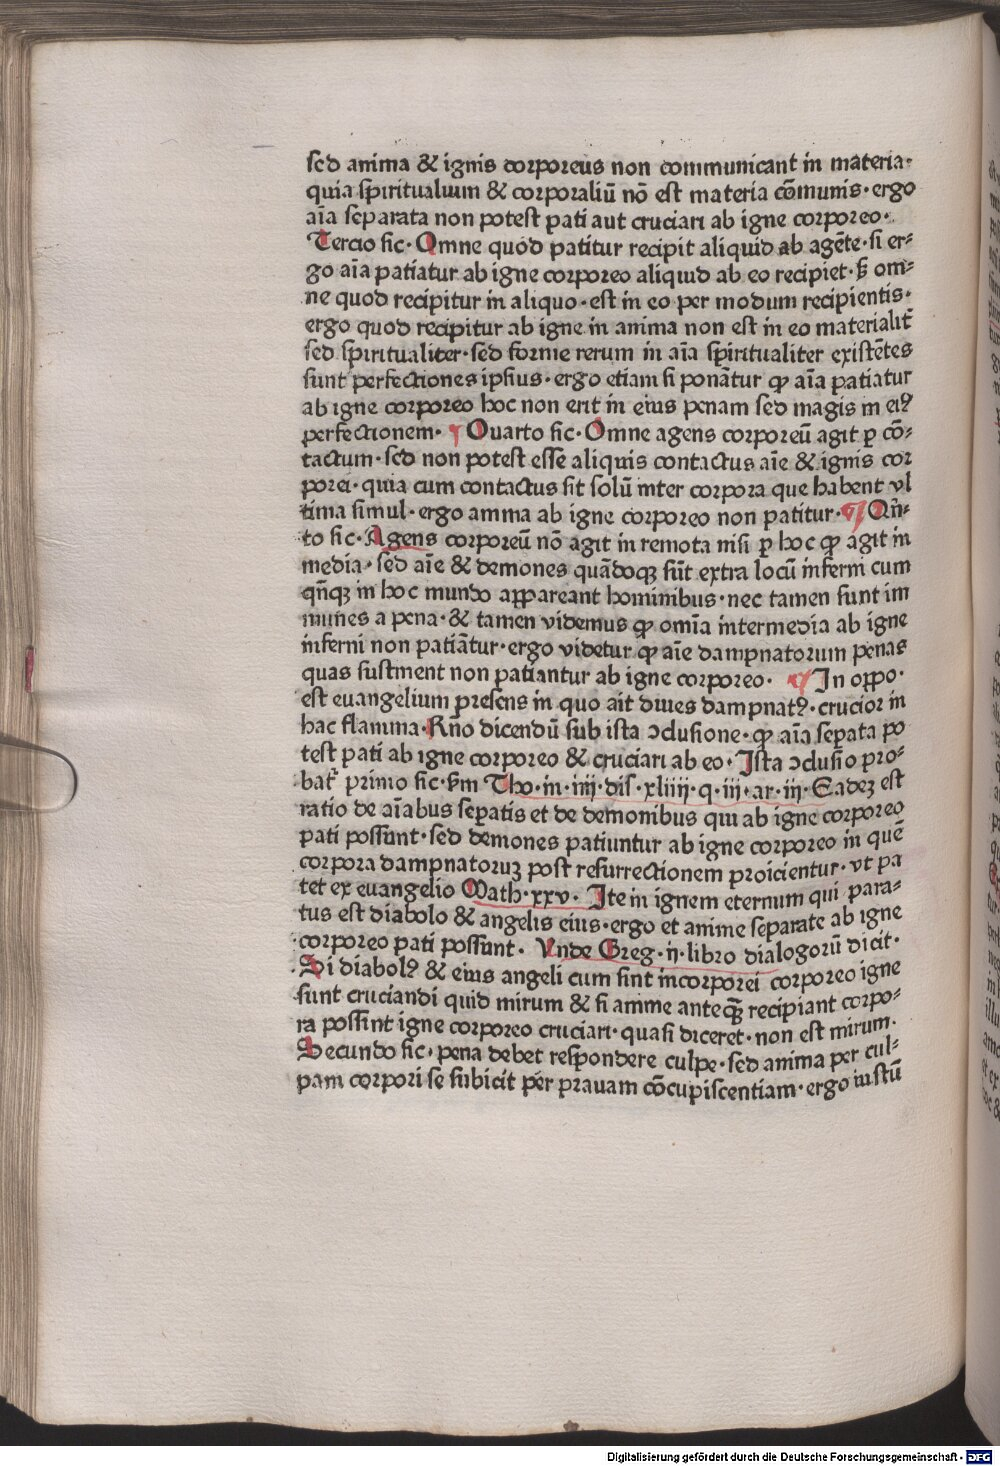 sed anima & ignis corporeus non communicant in materia·
quia spiritualium & corporaliū nō est materia cōmunis· ergo
aīa separata non potest pati aut cruciari ab igne corporeo·
Tercio sic· Omne quod patitur recipit aliquid ab agēte· si er⸗
go aīa patiatur ab igne corporeo aliquid ab eo recipiet· om⸗
ne quod recipitur in aliquo· est in eo per modum recipientis·
ergo quod recipitur ab igne in anima non est in eo materialit̄
sed spiritualiter· sed forme rerum in aīa spiritualiter existētes
sunt perfectiones ipsius· ergo etiam si ponātur ꝙ aīa patiatur
ab igne corporeo hoc non erit in eius penam sed magis in eiꝰ
perfectionem· ¶ Quarto sic· Omne agens corporeū agit ꝑ cō⸗
tactum· sed non potest esse aliquis contactus aīe & ignis cor
porei· quia cum contactus sit solū inter corpora que habent vl
tima simul· ergo amma ab igne corporeo non patitur· ¶ Qn̄⸗
to sic· Agens corporeū nō agit in remota nisi ꝑ hoc ꝙ agit in
media· sed aīe & demones quādoqꝫ sūt extra locū inferni cum
qn̄qꝫ in hoc mundo appareant hominibus· nec tamen sunt im
munes a pena· & tamen videmus ꝙ omīa intermedia ab igne
inferni non patiātur· ergo videtur ꝙ aīe dampnatorum penas
quas sustinent non patiantur ab igne corporeo· ¶ In oppo·
est euangelium presens in quo ait diues dampnatꝰ· crucior in
hac flamma· Rn̄o dicendū sub ista ↄclusione· ꝙ aīa sepata po
test pati ab igne corporeo & cruciari ab eo· Ista ↄclusio pro⸗
bat᷑ primo sic· Tho· in· iiij· dis· xliiij· q· iij· ar· iij· Eadeꝫ est
ratio de aīabus sepatis et de demonibus qui ab igne corporeo
pati possunt· sed demones patiuntur ab igne corporeo in quē
corpora dampnatoruꝫ post resurrectionem proicientur· vt pa
tet ex euangelio Math· xxv· Ite in ignem eternum qui para⸗
tus est diabolo & angelis eius· ergo et anime separate ab igne
corporeo pati possunt· Vnde Greg· ij· libro dialogorū dicit·
Si diabolꝰ & eius angeli cum sint incorporei corporeo igne
sunt cruciandi quid mirum & si amme anteqꝫ recipiant corpo⸗
ra possint igne corporeo cruciari· quasi diceret· non est mirum·
Secundo sic· pena debet respondere culpe· sed anima per cul⸗
pam corpori se subicit per prauam cōcupiscentiam· ergo iustū
Digitalisierung gefördert durch die Deutsche Forschungsgemeinschaft · DFG